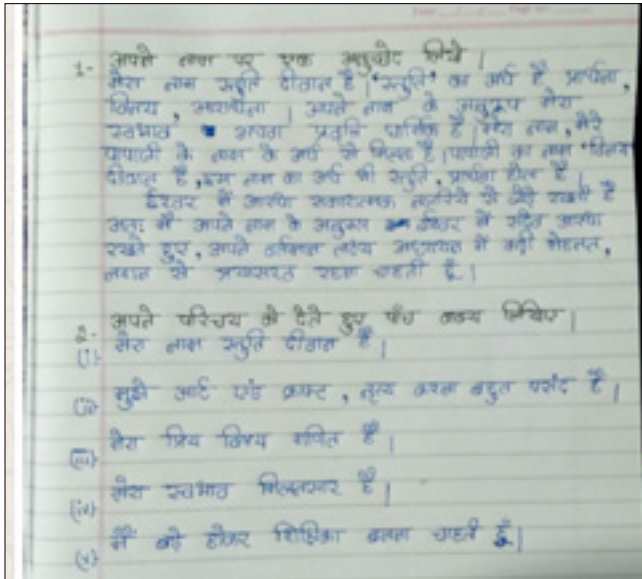 1- अपने नाम पर एक अनुच्छेद लिखें |
मेरा नाम स्तुति दीवान है | "स्तुति" का अर्थ है प्रार्थना,
विनय, आराधना | अपने नाम के अनुरूप मेरा
स्वभाव अथवा प्रवृति धार्मिक है | मेरा नाम, मेरे
पापाजी के नाम के अर्थ से मिलता है | पापाजी का नाम "विनय
दीवान है, इस नाम का अर्थ भी स्तुति, प्रार्थना होता है |
ईश्वर में आस्था सकारात्मक नजरिये से जोड़े रखती है
अतः मैं अपने नाम के अनुरूप ईश्वर में आस्था
रखते हुए, अपने वर्तमान लक्ष्य अध्ययन में कड़ी मेहनत,
लगन से प्रयासरत रहना चाहती हूँ |
2- अपने परिचय को देते हुए पाँच वाक्य लिखिए |
(i) मेरा नाम स्तुति दीवान है |
(ii) मुझे आर्ट एंड क्राफ्ट, नृत्य करना बहुत पसंद है |
(iii) मेरा प्रिय विषय गणित है |
(iv) मेरा स्वभाव मिलनसार है |
(v) मैं बड़े होकर शिक्षिका बनना चाहती हूँ |